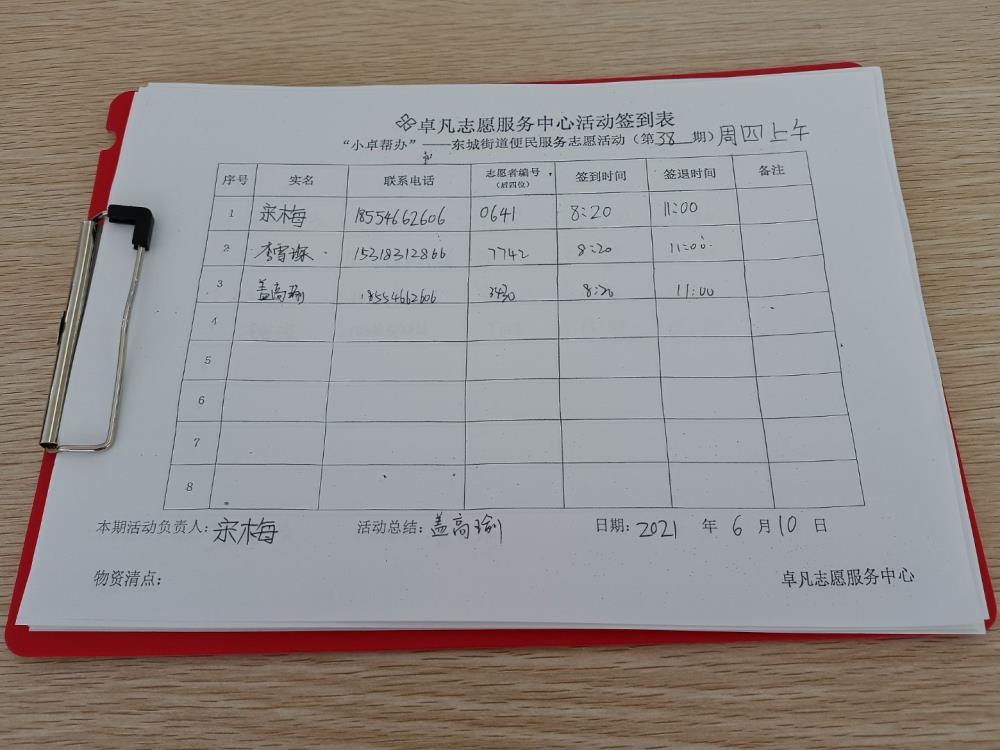 卓凡志愿服务中心活动签到表
“小卓帮办”——东城街道便民服务志愿活动（第38期）周四上午
序号 实名 联系电话 志愿者编号（后四位） 签到时间 签退时间 备注
1 宋梅 18554662606 0641 8:20 11:00
2 李雪 15318312866 7742 8:20 11:00
3 盖高瑜 18554662606 3430 8:20 11:00
4
5
6
7
8
本期活动负责人：宋梅 活动总结：盖高瑜 日期：2021 年 6 月 10 日
物资清点： 卓凡志愿服务中心